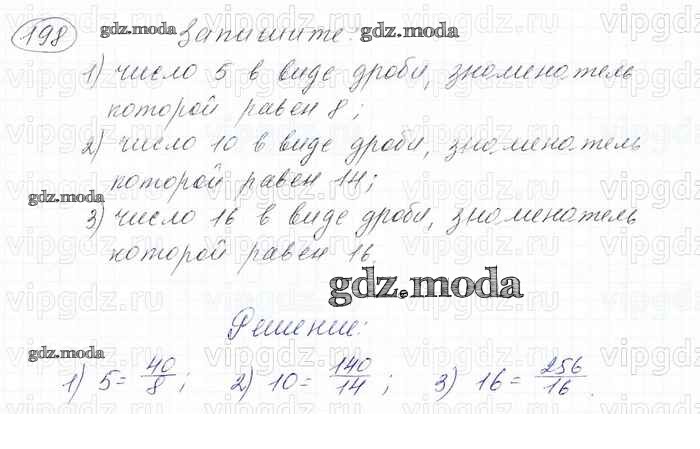 198 gdz.moda Запишите: gdz.moda
1) число 5 в виде дроби, знаменатель
которой равен 8;
2) число 10 в виде дроби, знаменатель
которой равен 14;
gdz.moda
3) число 16 в виде дроби, знаменатель
которой равен 16.
gdz.moda
Решение:
gdz.moda
1) 5 = 40/8; 2) 10 = 140/14; 3) 16 = 256/16.
vipgdz.ru vipgdz.ru vipgdz.ru vipgdz.ru